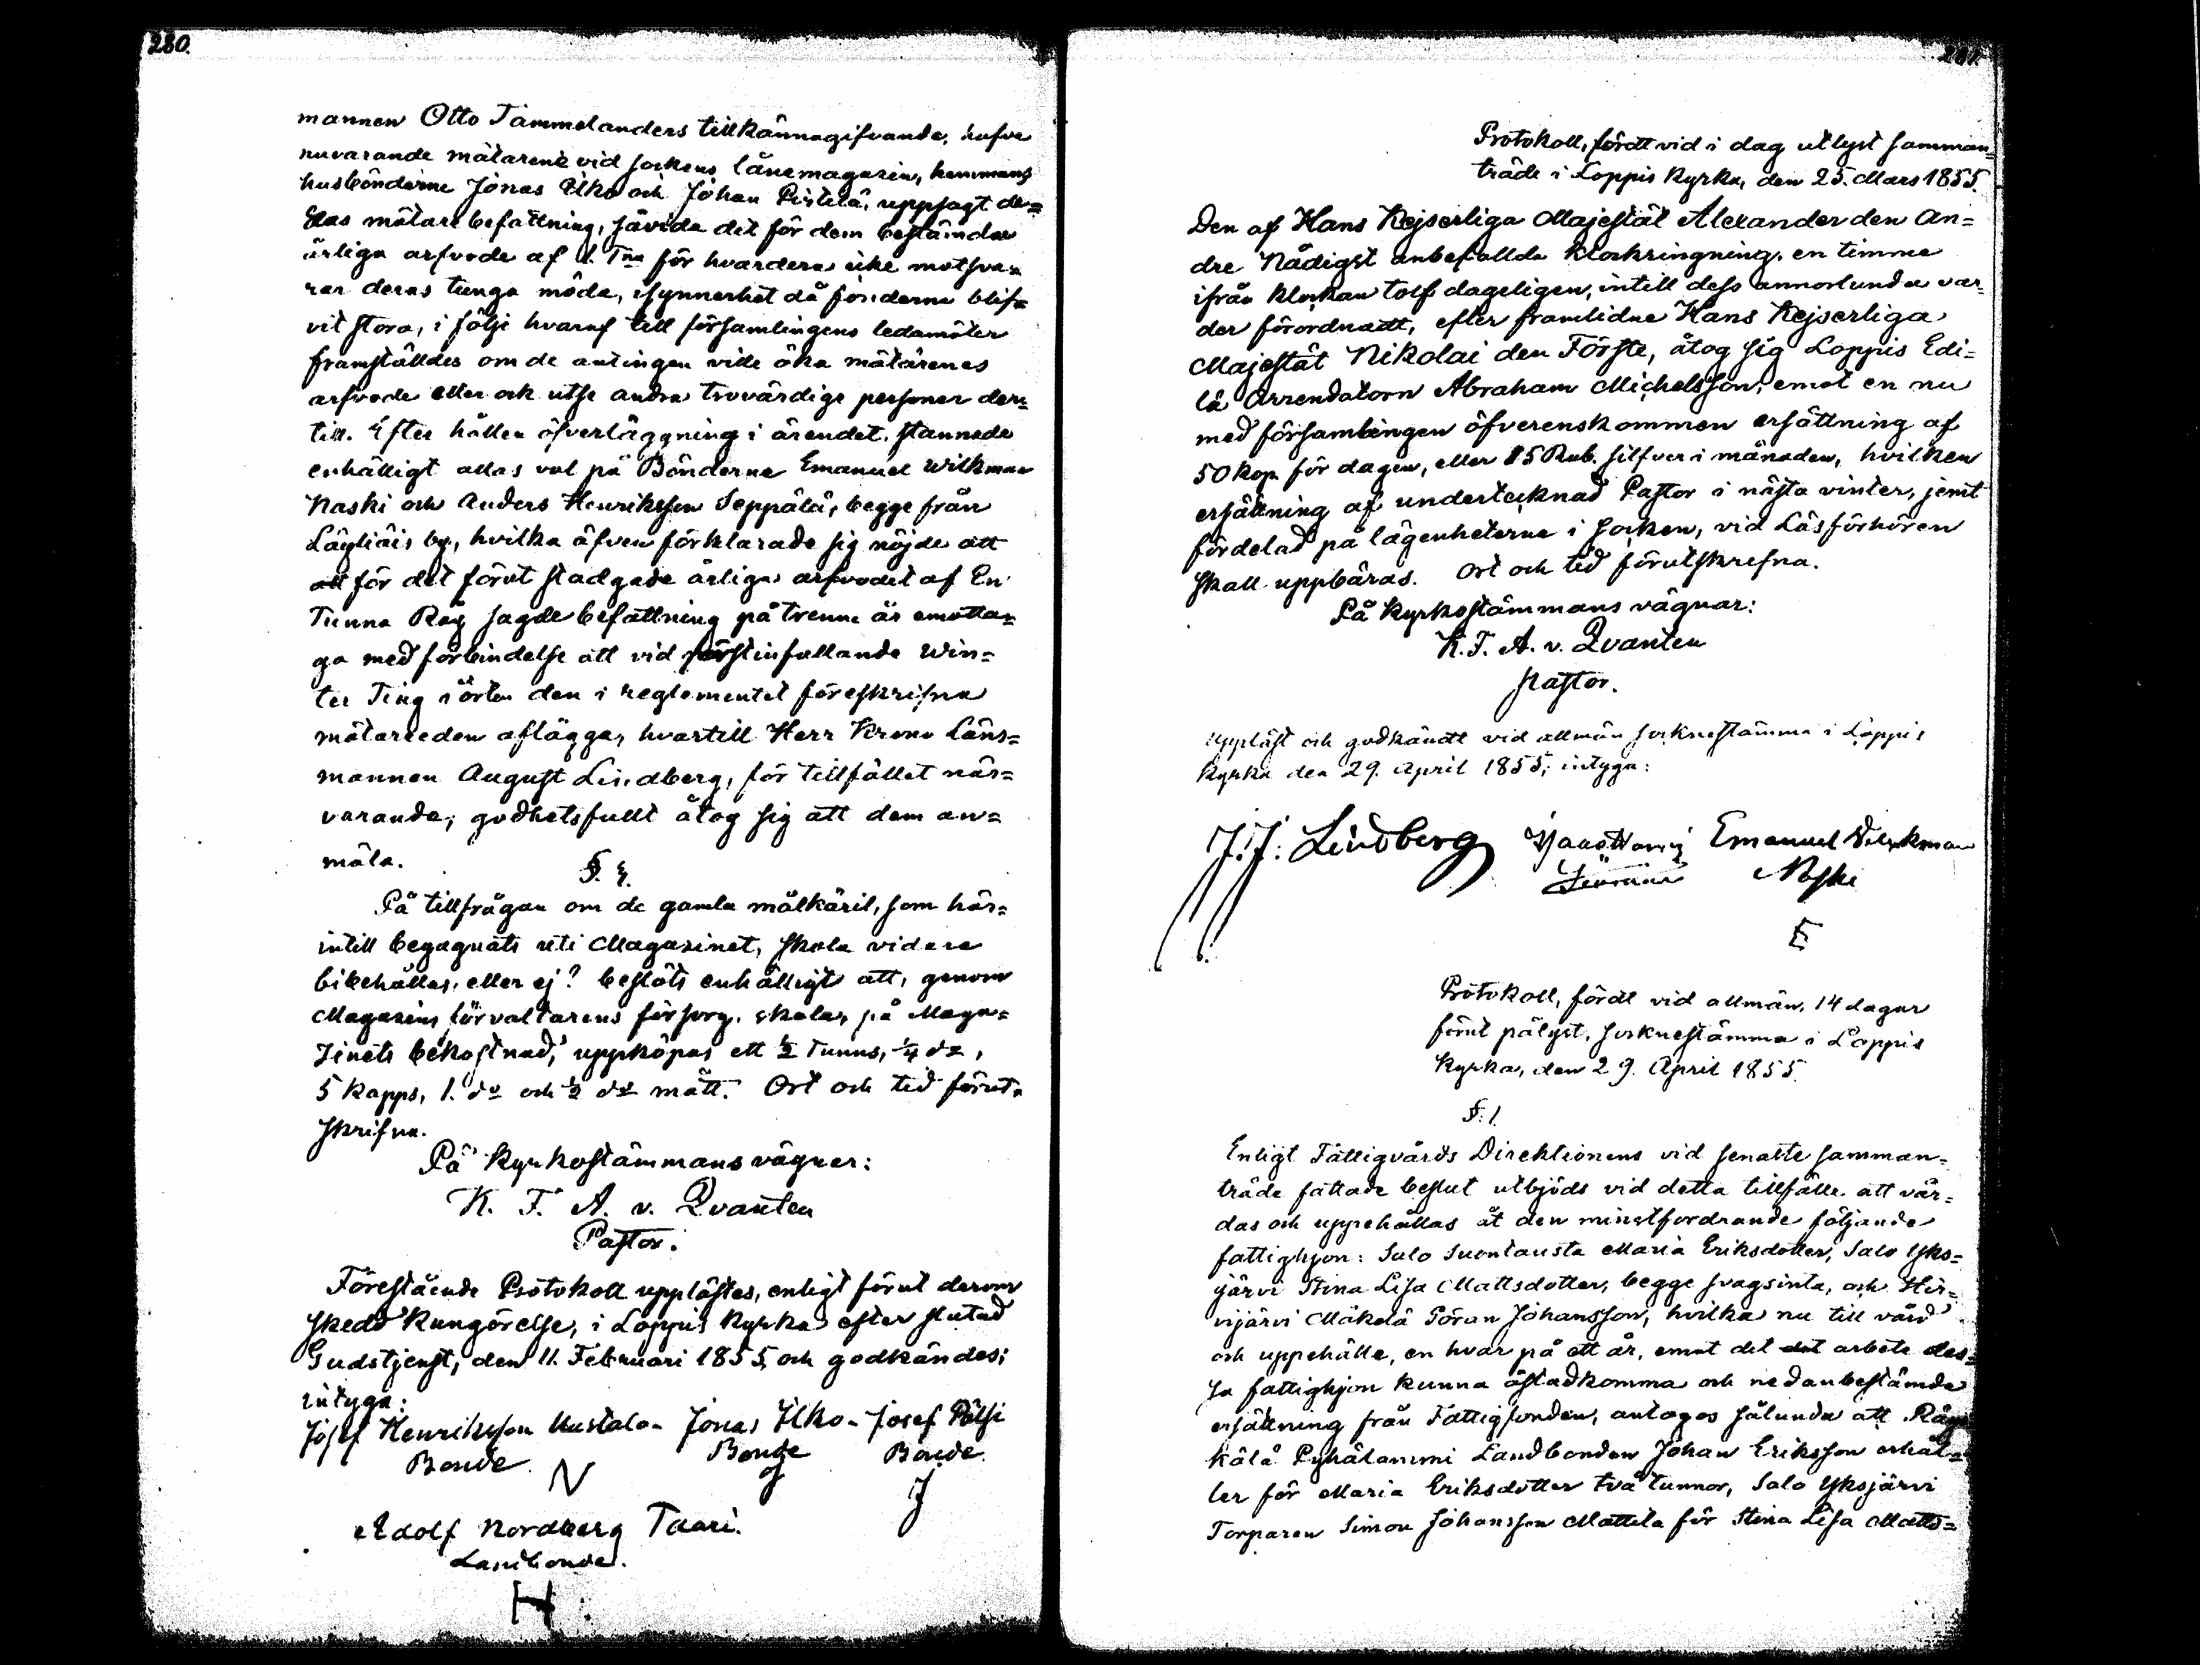 280.
mannen Otto Tammelanders tillkännagifvande, hafva
nuvarande mätarene vid sockens lånemagasin, hemmans
husbönderne Jonas Ilko och Johan Pietilä, uppsagt de=
ras mätare befattning, såvida det för dem bestämda
årliga arfvode af 1. Tna för hvardera icke motsva=
rar deras tunga möda, isynnerhet då fonderne blif=
vit stora, i följe hvaraf till församlingens ledamöter
framställdes om de antingen ville öka mätarenes
arfvode eller ock utse andra trovärdige personer der=
till. Efter hållen öfverläggning i ärendet, stannade
enhälligt allas val på Bönderne Emanuel Wilkman
Naski och Anders Henriksson Seppälä, begge från
Läyliäis by, hvilka äfven förklarade sig nöjde att
att för det förut stadgade årliga arfvodet af En
Tunna Råg sagde befattning på trenne år emotta=
ga med förbindelse att vid förstinfallande Win=
ter Ting i orten den i reglementet föreskrifna
mätareeden aflägga, hvartill Herr Krono Läns=
mannen August Lindberg, för tillfället när=
varande, godhetsfullt åtog sig att dem an=
mäla.
På tillfrågan om de gamla mätkäril, som här=
intill begagnats uti Magasinet, skola vidare
bibehållas, eller ej? beslöts enhälligt att, genom
Magasins förvaltarens försorg, skola, på Maga=
sinets bekostnad, uppköpas ett ½ Tunns, ¼ do,
5 Kapps, 1. do och ½ do mått. Ort och tid förut=
skrifna.
På Kyrkostämmans vägnar:
K. F. A. v. Qvanten
Pastor.
Förestående Protokoll upplästes, enligt förut derom
skedd Kungörelse, i Loppis Kyrka efter slutad
Gudstjenst, den 11. Februari 1855, och godkändes;
intyga:
Josef Henriksson Uustalo - Jonas Ilko - Josef Pälsi
Bonde. Bonde Bonde.
N J J
Adolf Nordberg Taari.
Landbonde.
H
281.
Protokoll, fördt vid i dag utlyst samman=
träde i Loppis Kyrka, den 25. Mars 1855.
Den af Hans Kejserliga Majestät Alexander den An=
dre Nådigst anbefallda klockringning, en timme
ifrån klockan tolf dageligen, intill dess annorlunda var=
der förordnadt, efter framlidne Hans Kejserliga
Majestät Nikolai den Förste, åtog sig Loppis Edi=
lä Arrendatorn Abraham Michelsson, emot en nu
med församlingen öfverenskommen ersättning af
50 kop. för dagen, eller 15 Rub. silfver i månaden, hvilken
ersättning af undertecknad Pastor i nästa vinter, jemt
fördelad på lägenheterne i socken, vid Läsförhören
skall uppbäras. Ort och tid förutskrefna.
På Kyrkostämmans vägnar:
K. F. A. v. Qvanten
Pastor.
Uppläst och godkändt vid allmän socknestämma i Loppis
Kyrka den 29. April 1855; intyga:
J. J. Lindberg Emanuel Wilkman
Naski
E
Protokoll, fördt vid allmän, 14 dagar
förut pålyst, socknestämma i Loppis
Kyrka, den 29. April 1855.
§. 1.
Enligt Fattigvårds Direktionens vid senaste samman=
träde fattade beslut utbjöds vid detta tillfälle att vår=
das och uppehållas åt den minstfordrande följande
fattighjon: Salo Suontausta Maria Eriksdotter, Salo Yks=
järvi Stina Lisa Mattsdotter, begge svagsinta, och Hir=
vijärvi Mäkelä Göran Johansson, hvilka nu till vård
och uppehälle, en hvar på ett år, emot det det arbete des=
sa fattighjon kunna åstadkomma och nedanbestämde
ersättning från Fattigfonden, antogos sålunda att Räys
kälä Pyhälammi Landbonden Johan Eriksson erhål=
ler för Maria Eriksdotter två tunnor, Salo Yksjärvi
Torparen Simon Johansson Mattila för Stina Lisa Matts=